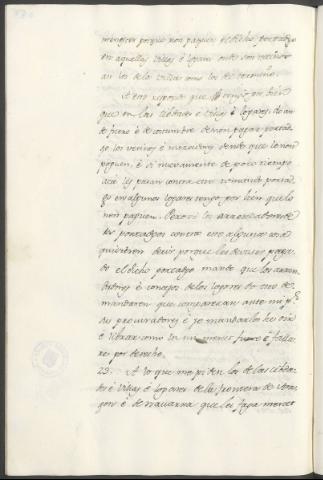 menester porque non paguen el dicho portadgo
en aquellas villas é logares onde son vecinos
asi los de la villa como los del termino.
A esto respondo que tengo por bien
que en las cibdades é villas é logares do an
de fuero é de costumbre de non pagar portad-
go los vecinos é moradores dende que lo non
paguen, é si nuevamente de poco tiempo
acá les pasan contra esto tomando portad-
go en algunos logares tengo por bien que lo
non paguen. Pero si los arrendadores de
los portadgos contra esto alguna cosa
quisieren decir porque les deviese pagar
el dicho portadgo mando que los arren-
dadores é concejos de los logares do esto de-
mandaren que comparezcan ante mi p.r
sus procuradores é yo mandarlos he oir
é librar como la mi merced fuere é falla-
re por derecho.
23. A lo que me piden los de las cibda-
des é villas é logares de la frontera de Ara-
gon é de Navarra que les faga merced